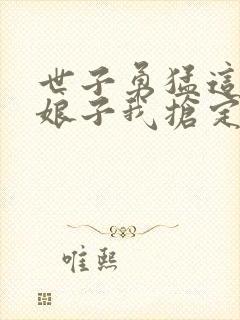 世子勇猛這
娘子我搶定
唯熙